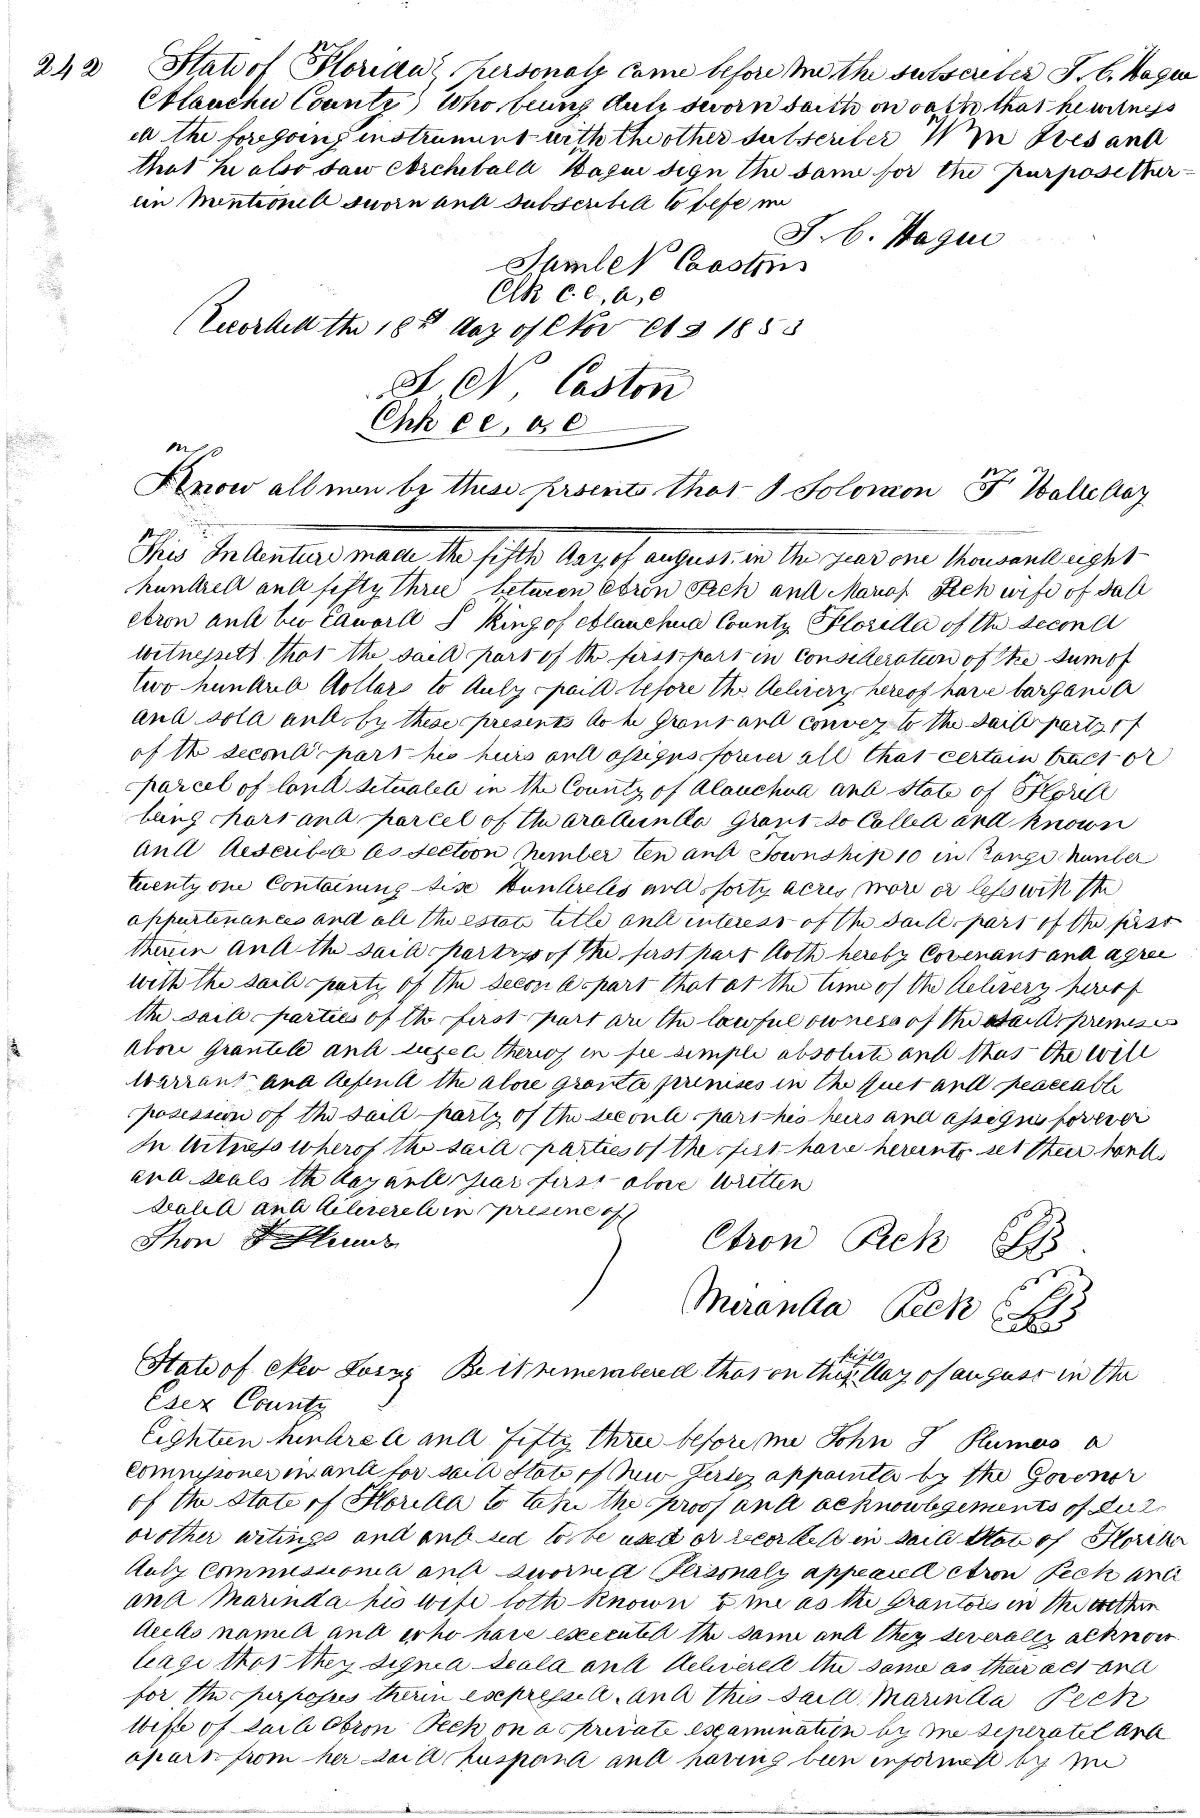 242 State of Florida } Personaly came before me the subscriber T. C. Hague
Alauchu County } Who being duly sworn saith on oath that he witness
ed the foregoing instrument with the other subscriber Wm Ives and
that he also saw Archebald Hague sign the same for the purpose ther=
ein mentioned sworn and subscribed to befe me
T. C. Hague
Samle N Caostons
Clk c. c, a, c
Recorded the 18th day of Nov AD 1853
S. N, Caston
Chk cc, a, c
Know all men by these prsents that I Solomon F Halleday
This Indenture made the fifth day of august in the year one thousand eight
hundred and fifty three between Aron Peck and Peck wife of sad
Aron and Edward S King of Alauchua County Florida of the second
witnesseth that the said part of the first part in consideration of the sum of
two hundred dollars to duly paid before the delivery hereof have bargand
and sold and by these presents do he Grant and convey to the said party of
of the second part his heirs and assigns forever all that certain tract or
parcel of land situated in the County of Alauchua and State of Florid
being part and parcel of the aradunda Grant so Called and known
and described as section number ten and Township 10 in Range number
twenty one Containing six Hundredes and forty acres more or less with the
appurtenances and all the estate title and interest of the said part of the first
therein and the said partys of the first part doth hereby Covenant and agree
with the said party of the second part that at the time of the delivery hereof
the said parties of the first part are the lawful owners of the said premises
above Granted and seized therof in fee simple absolute and that the will
warrant and defend the above granted premises in the quet and peaceable
posession of the said party of the second part his heirs and assigns forever
In Witness wherof the said parties of the first have hereunto set their hands
and seals the day and year first above written
Sealed and delivered in presence of }
Thon J Plumes
Aron Peck LS
Miranda Peck LS
State of New Jersy Be it remembered that on this fifth day of august in the
Esex County
Eighteen hundred and fifty three before me John J Plumes a
Commissoner in and for said State of New Jersey appointed by the Govenor
of the State of Florida to take the proof and acknowlegements of
or other writings and to be used or recorded in said State of Florida
duly commissioned and sworned Personaly appeared Aron Peck and
and Marinda his wife both known to me as the Grantors in the within
deeds named and who have executed the same and they severally acknow
ledge that they signed seald and delivered the same as their act and
for the purposes therin expressed. and this said Marinda Peck
wife of said Abron Peck on a private examination by me seperatel and
apart from her said husband and having been informed by me